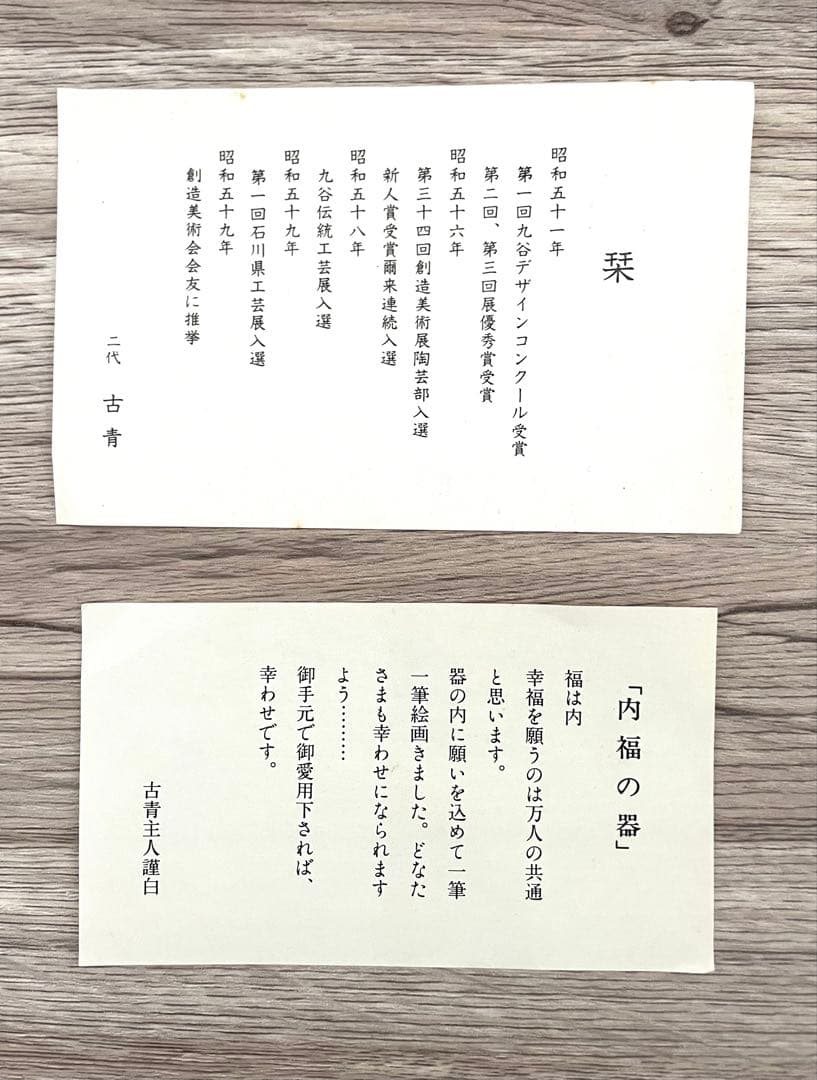 栞
昭和五十一年
第一回九谷デザインコンクール受賞
第二回、第三回展優秀賞受賞
昭和五十六年
第三十四回創造美術展陶芸部入選
新人賞受賞爾来連続入選
昭和五十八年
九谷伝統工芸展入選
昭和五十九年
第一回石川県工芸展入選
昭和五十九年
創造美術会会友に推挙
二代 古青
「内福の器」
福は内
幸福を願うのは万人の共通
と思います。
器の内に願いを込めて一筆
一筆絵画きました。どなた
さまも幸わせになられます
よう………
御手元で御愛用下されば、
幸わせです。
古青主人謹白